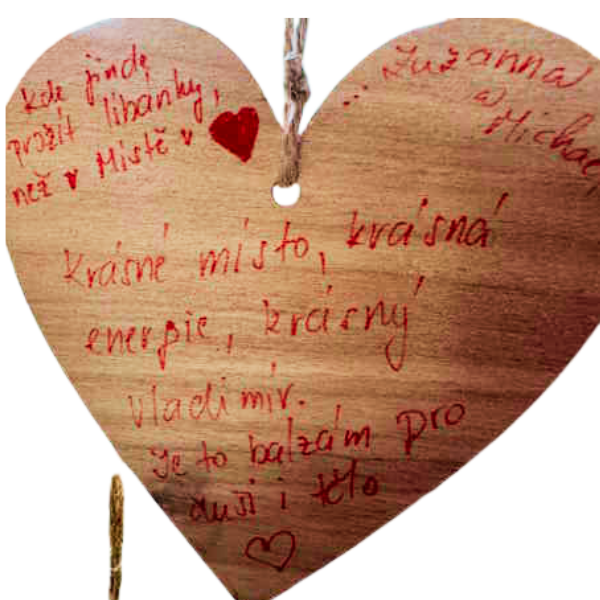 kde jinde
prožít líbanky,
než v Místě v
Zuzanna
a
Michael
krásné místo, krásná
energie, krásný
vladimír.
Je to balzám pro
duši i tělo